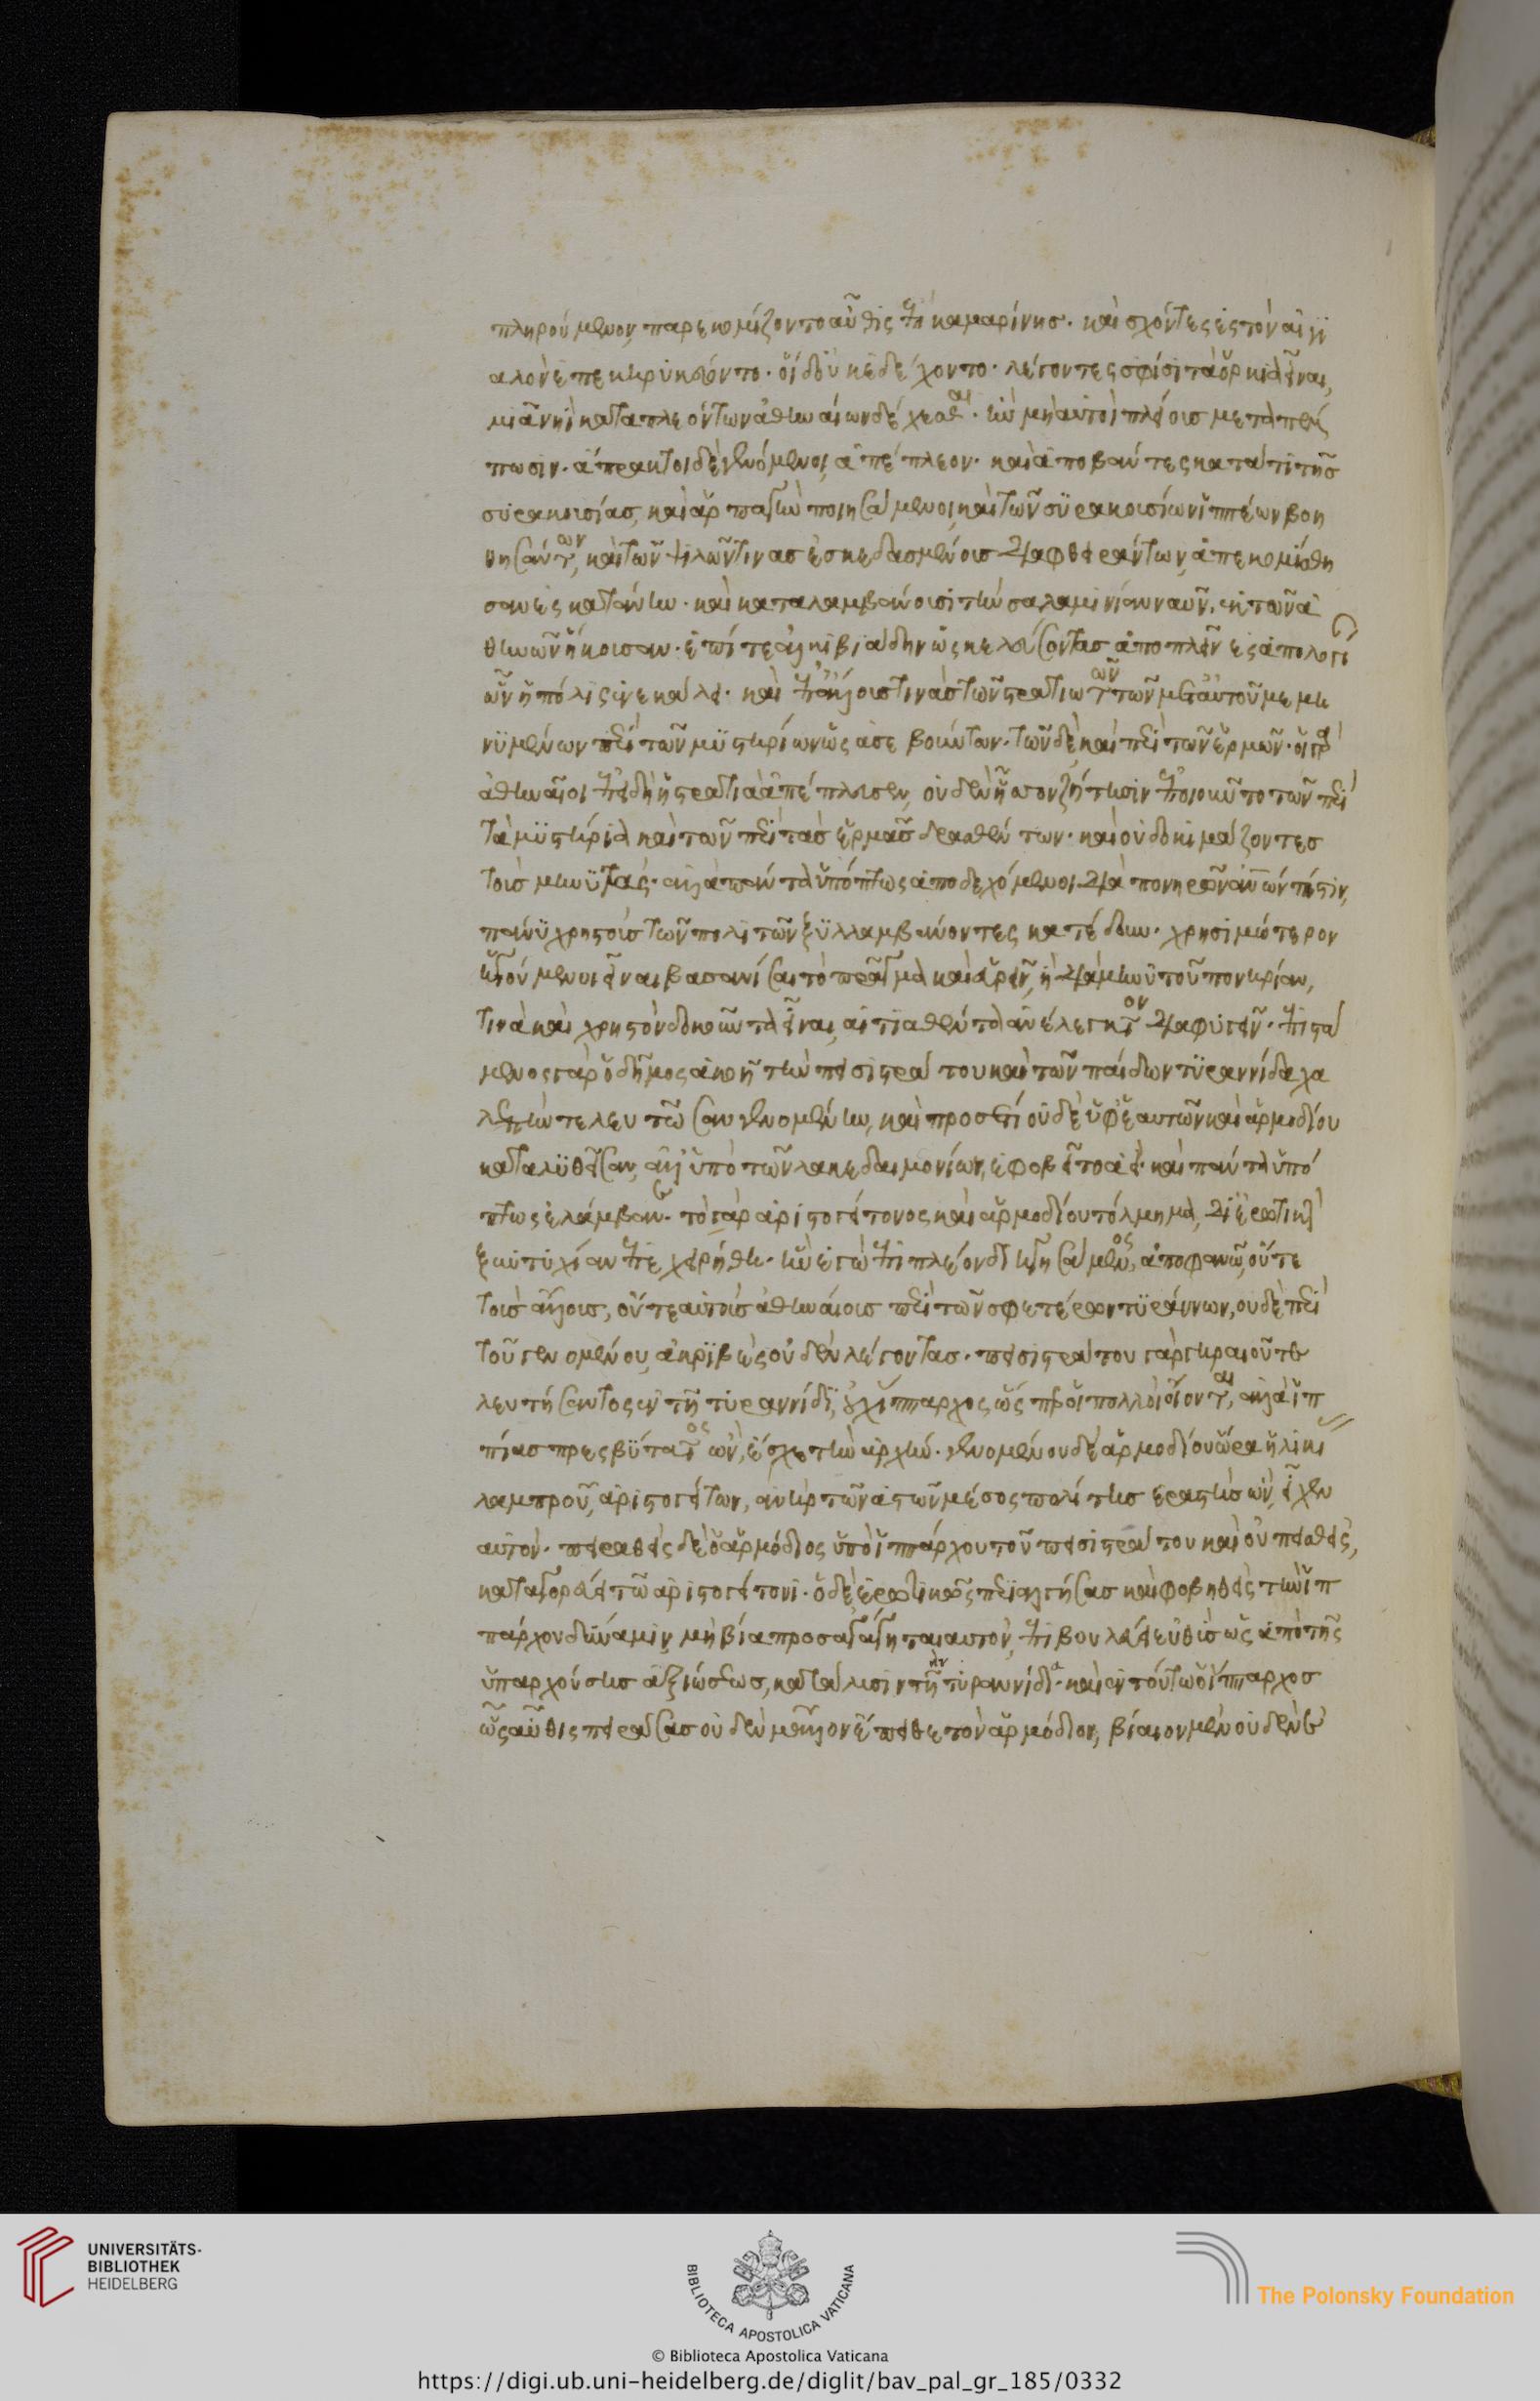 πληρούμενον, παρεκομίζοντο αὖθις ἐπὶ καμαρίνης. καὶ σχόντες ἐς τὸν αἰγι
αλὸν ἐπεκηρυκεύοντο. οἱ δ' οὐκ ἐδέχοντο. λέγοντες σφίσι τὰ ὅρκια εἶναι,
μιᾷ νηὶ καταπλεόντων ἀθηναίων δέχεσθαι. ἢν μὴ αὐτοὶ πλείους μεταπέμ
πωσιν. ἄπρακτοι δὲ γενόμενοι ἀπέπλεον. καὶ ἀποβάντες κατά τι τῆς
συρακουσίας, καὶ ἁρπαγὴν ποιησάμενοι, καὶ τῶν συρακουσίων ἱππέων βοη
θησάντων, καὶ τῶν ψιλῶν τινας ἐσκεδασμένους διαφθειράντων, ἀπεκομίσθη
σαν ἐς κατάνην. καὶ καταλαμβάνουσι τὴν σαλαμινίαν ναῦν, ἐκ τῶν ἀ
θηνῶν ἥκουσαν. ἐπί τε ἀλκιβιάδην ὡς κελεύσοντας ἀποπλεῖν ἐς ἀπολογί
ὧν ἡ πόλις ἐνεκάλει. καὶ ἐπ' ἄλλους τινὰς τῶν στρατιωτῶν τῶν μετ' αὐτοῦ μεμη
νυμένων περὶ τῶν μυστηρίων ὡς ἀσεβούντων. τῶν δὲ καὶ περὶ τῶν ἑρμῶν. οἱ γὰρ
ἀθηναῖοι ἐπειδὴ ἡ στρατιὰ ἀπέπλευσεν, οὐδὲν ἧσσον ζήτησιν ἐποιοῦντο τῶν περὶ
τὰ μυστήρια καὶ τῶν περὶ τὰς ἑρμᾶς δρασθέντων. καὶ οὐ δοκιμάζοντες
τοὺς μηνυτάς. ἀλλὰ πάντα ὑπόπτως ἀποδεχόμενοι. διὰ πονηρῶν ἀνθρώπων πίστιν,
πάνυ χρηστοὺς τῶν πολιτῶν ξυλλαμβάνοντες κατέδουν. χρησιμώτερον
ἡγούμενοι εἶναι βασανίσαι τὸ πρᾶγμα καὶ εὑρεῖν, ἢ διὰ μηνυτοῦ πονηρίαν,
τινὰ καὶ χρηστὸν δοκοῦντα εἶναι, αἰτιαθέντα ἀνέλεγκτον διαφυγεῖν. ἐπιστά
μενος γὰρ ὁ δῆμος ἀκοῇ τὴν πεισιστράτου καὶ τῶν παίδων τυραννίδα χα
λεπὴν τελευτῶσαν γενομένην, καὶ προσέτι οὐδὲ ὑφ' ἑαυτῶν καὶ ἁρμοδίου
καταλυθεῖσαν, ἀλλ' ὑπὸ τῶν λακεδαιμονίων, ἐφοβεῖτο ἀεί. καὶ πάντα ὑπό
πτως ἐλάμβανε. τὸ γὰρ ἀριστογείτονος καὶ ἁρμοδίου τόλμημα, δι' ἐρωτικὴν
ξυντυχίαν ἐπεχειρήθη. ἣν ἐγὼ ἐπὶ πλέον διηγησάμενος, ἀποφανῶ, οὔτε
τοὺς ἄλλους, οὔτε αὐτοὺς ἀθηναίους περὶ τῶν σφετέρων τυράννων, οὐδὲ περὶ
τοῦ γενομένου, ἀκριβὲς οὐδὲν λέγοντας. πεισιστράτου γὰρ γηραιοῦ τε
λευτήσαντος ἐν τῇ τυραννίδι, οὐχ ἵππαρχος, ὥσπερ οἱ πολλοὶ οἴονται, ἀλλὰ ἱπ
πίας πρεσβύτατος ὢν, ἔσχε τὴν ἀρχήν. γενομένου δὲ ἁρμοδίου ὥρα ἡλικί
λαμπροῦ, ἀριστογείτων, ἀνὴρ τῶν ἀστῶν μέσος πολίτης ἐραστὴς ὢν, εἶχεν
αὐτόν. πειραθεὶς δὲ ὁ ἁρμόδιος ὑπὸ ἱππάρχου τοῦ πεισιστράτου καὶ οὐ πεισθείς,
καταγορεύει τῷ ἀριστογείτονι. ὁ δὲ ἐρωτικῶς περιαλγήσας καὶ φοβηθεὶς τὴν ἱπ
πάρχου δύναμιν, μὴ βίᾳ προσαγάγηται αὐτόν, ἐπιβουλεύει εὐθὺς ὡς ἀπὸ τῆς
ὑπαρχούσης ἀξιώσεως, κατάλυσιν τῇ τυραννίδι. καὶ ἐν τούτῳ ὁ ἵππαρχος
ὡς αὖθις πειράσας οὐδὲν μᾶλλον ἔπειθε τὸν ἁρμόδιον, βίαιον μὲν οὐδὲν ἐ
UNIVERSITÄTS-
BIBLIOTHEK
HEIDELBERG
BIBLIOTECA APOSTOLICA VATICANA
The Polonsky Foundation
© Biblioteca Apostolica Vaticana
https://digi.ub.uni-heidelberg.de/diglit/bav_pal_gr_185/0332